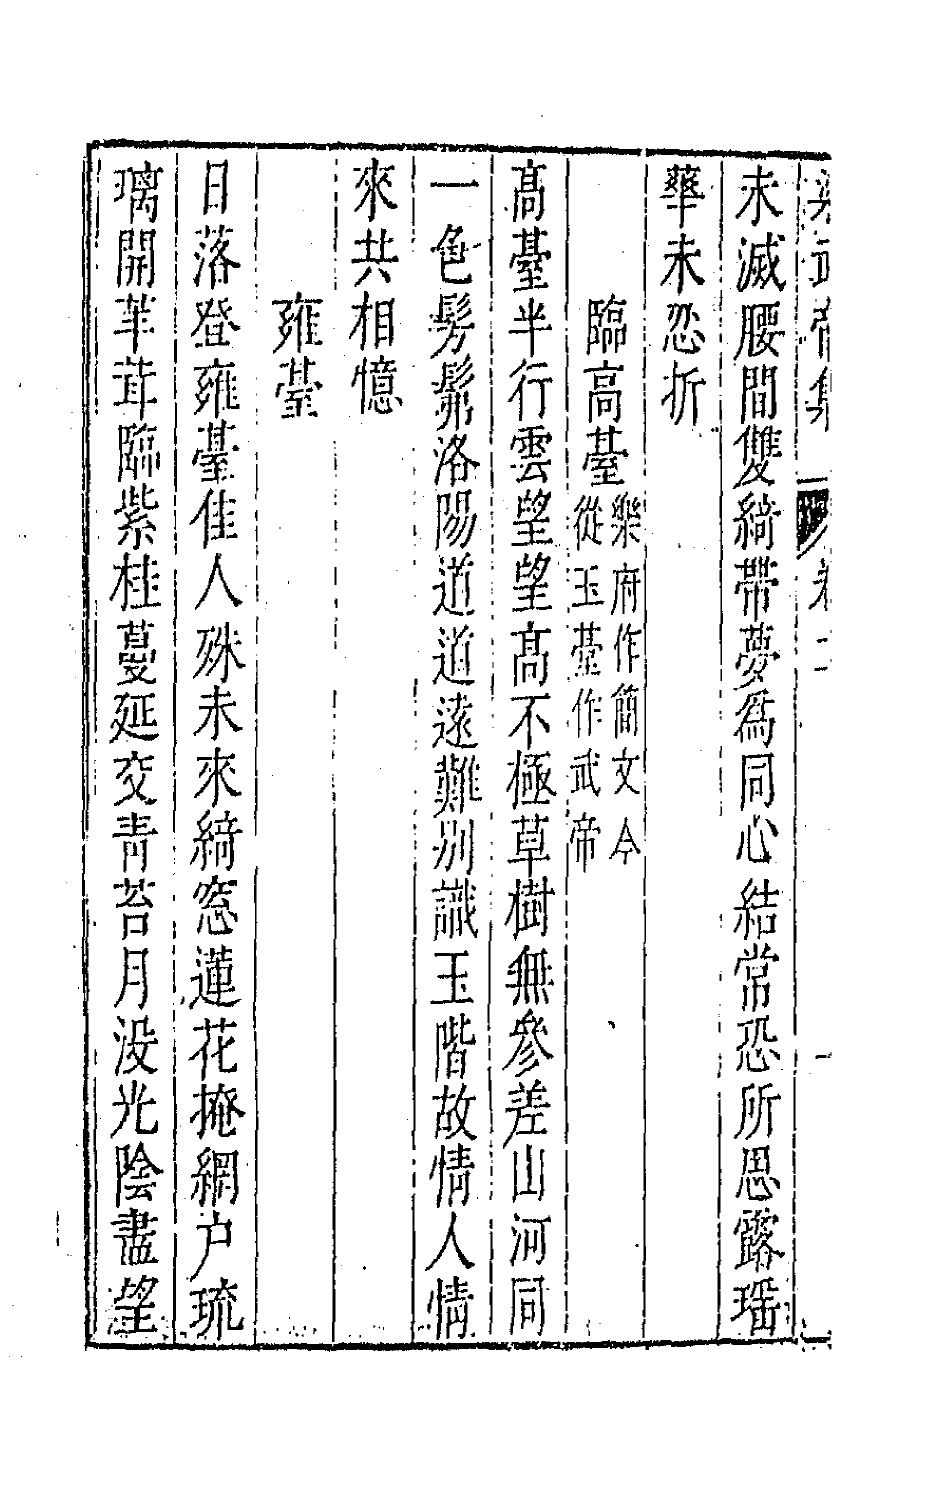 梁武帝集 卷二 一
未滅腰間雙綺帶夢爲同心結常恐所思露瑶
華未忍折
臨高臺樂府作簡文今從玉臺作武帝
高臺半行雲望望高不極草樹無參差山河同
一色髣髴洛陽道道遠難別識玉階故情人情
來共相憶
雍臺
日落登雍臺佳人殊未來綺窓蓮花掩網户琉
璃開苯茸臨紫桂蔓延交青苔月没光陰盡望